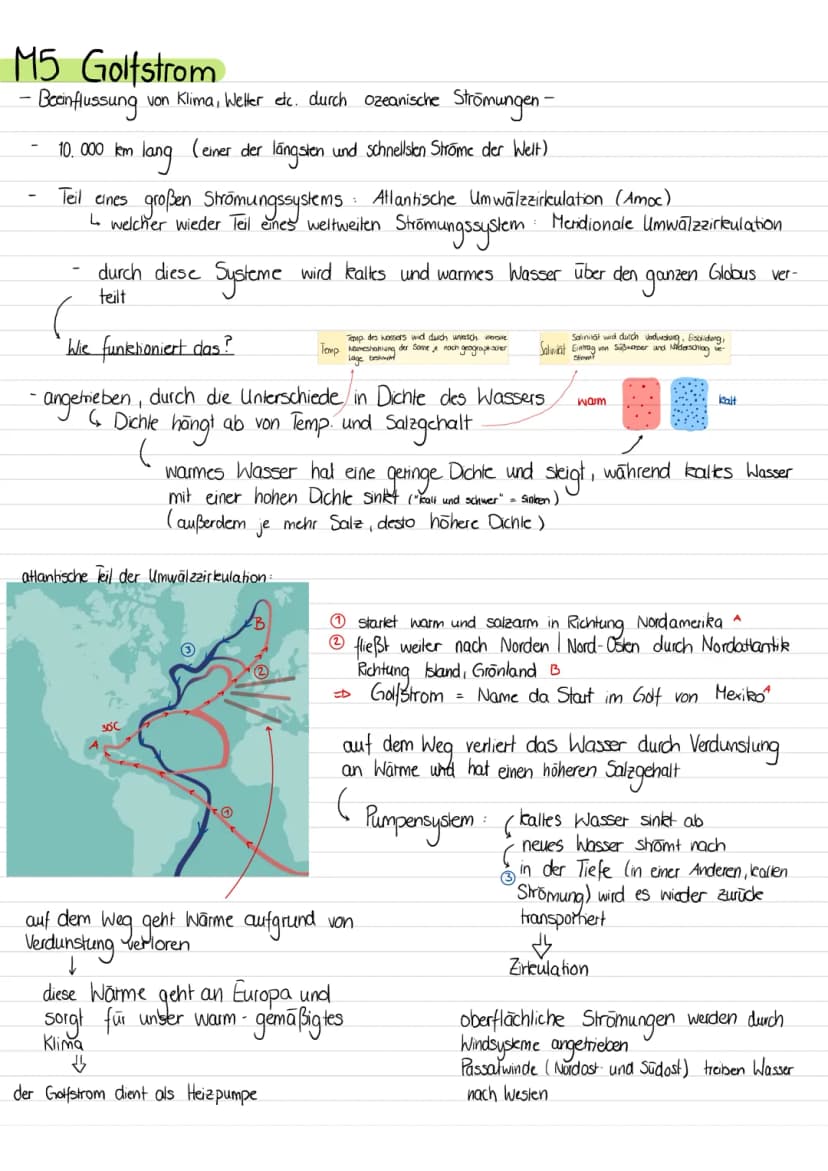 M5 Golfstrom
- Beeinflussung von Klima, Wetter etc. durch ozeanische Strömungen -
- 10.000 km lang (einer der längsten und schnellsten Ströme der Welt)
- Teil eines großen Strömungssystems: Atlantische Umwälzzirkulation (Amoc)
↳ welcher wieder Teil eines weltweiten Strömungssystem: Meridionale Umwälzzirkulation
- durch diese Systeme wird kaltes und warmes Wasser über den ganzen Globus ver-
teilt
Wie funktioniert das?
Temp
Temp. des Wassers wird durch
der Sonne je nach geographischer
Lage bestimmt
Salinität
Salinität wird durch Verdunstung, Eisbildung,
Eintrag von Süßwasser und Niederschlag be-
stimmt
- angetrieben, durch die Unterschiede in Dichte des Wassers
warm
kalt
↳ Dichte hängt ab von Temp. und Salzgehalt
warmes Wasser hat eine geringe Dichte und steigt, während kaltes Wasser
mit einer hohen Dichte sinkt ("kalt und schwer" = sinken)
(außerdem je mehr Salz, desto höhere Dichte)
atlantische Teil der Umwälzzirkulation:
B
③
②
30°C
A
①
① startet warm und salzarm in Richtung Nordamerika A
② fließt weiter nach Norden / Nord-Osten durch Nordatlantik
Richtung Island, Grönland B
⇒ Golfstrom = Name da Start im Golf von Mexiko A
auf dem Weg verliert das Wasser durch Verdunstung
an Wärme und hat einen höheren Salzgehalt
Pumpensystem: kaltes Wasser sinkt ab
neues Wasser strömt nach
③ in der Tiefe (in einer Anderen, kalten
Strömung) wird es wieder zurück
transportiert
⇓
Zirkulation
auf dem Weg geht Wärme aufgrund von
Verdunstung verloren
↓
diese Wärme geht an Europa und
sorgt für unser warm-gemäßigtes
Klima
⇓
der Golfstrom dient als Heizpumpe
oberflächliche Strömungen werden durch
Windsysteme angetrieben
Passatwinde (Nordost- und Südost) treiben Wasser
nach Westen